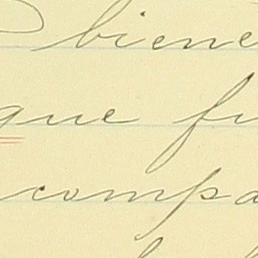 biene
que fu
compa